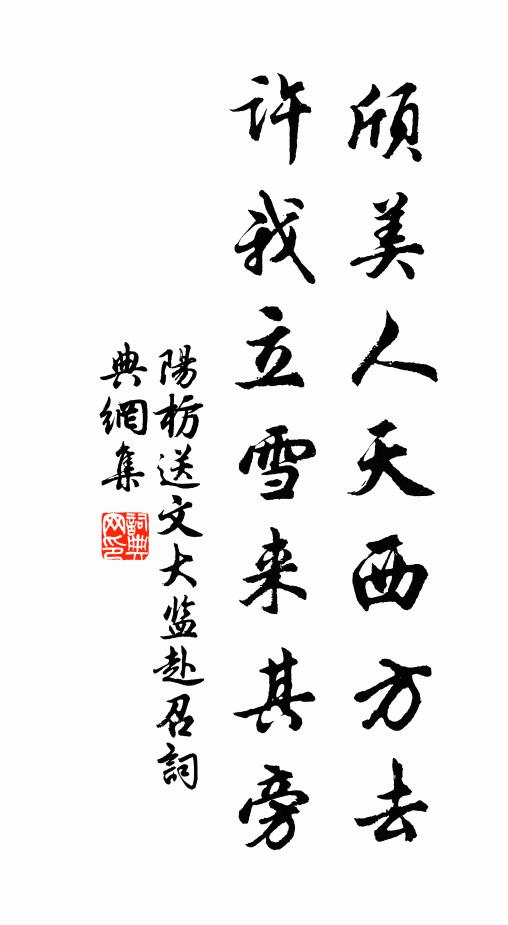 頎美人天西方去
許我立雪来其旁
陽枋送文大监赴召詞
典網集
詞典网印